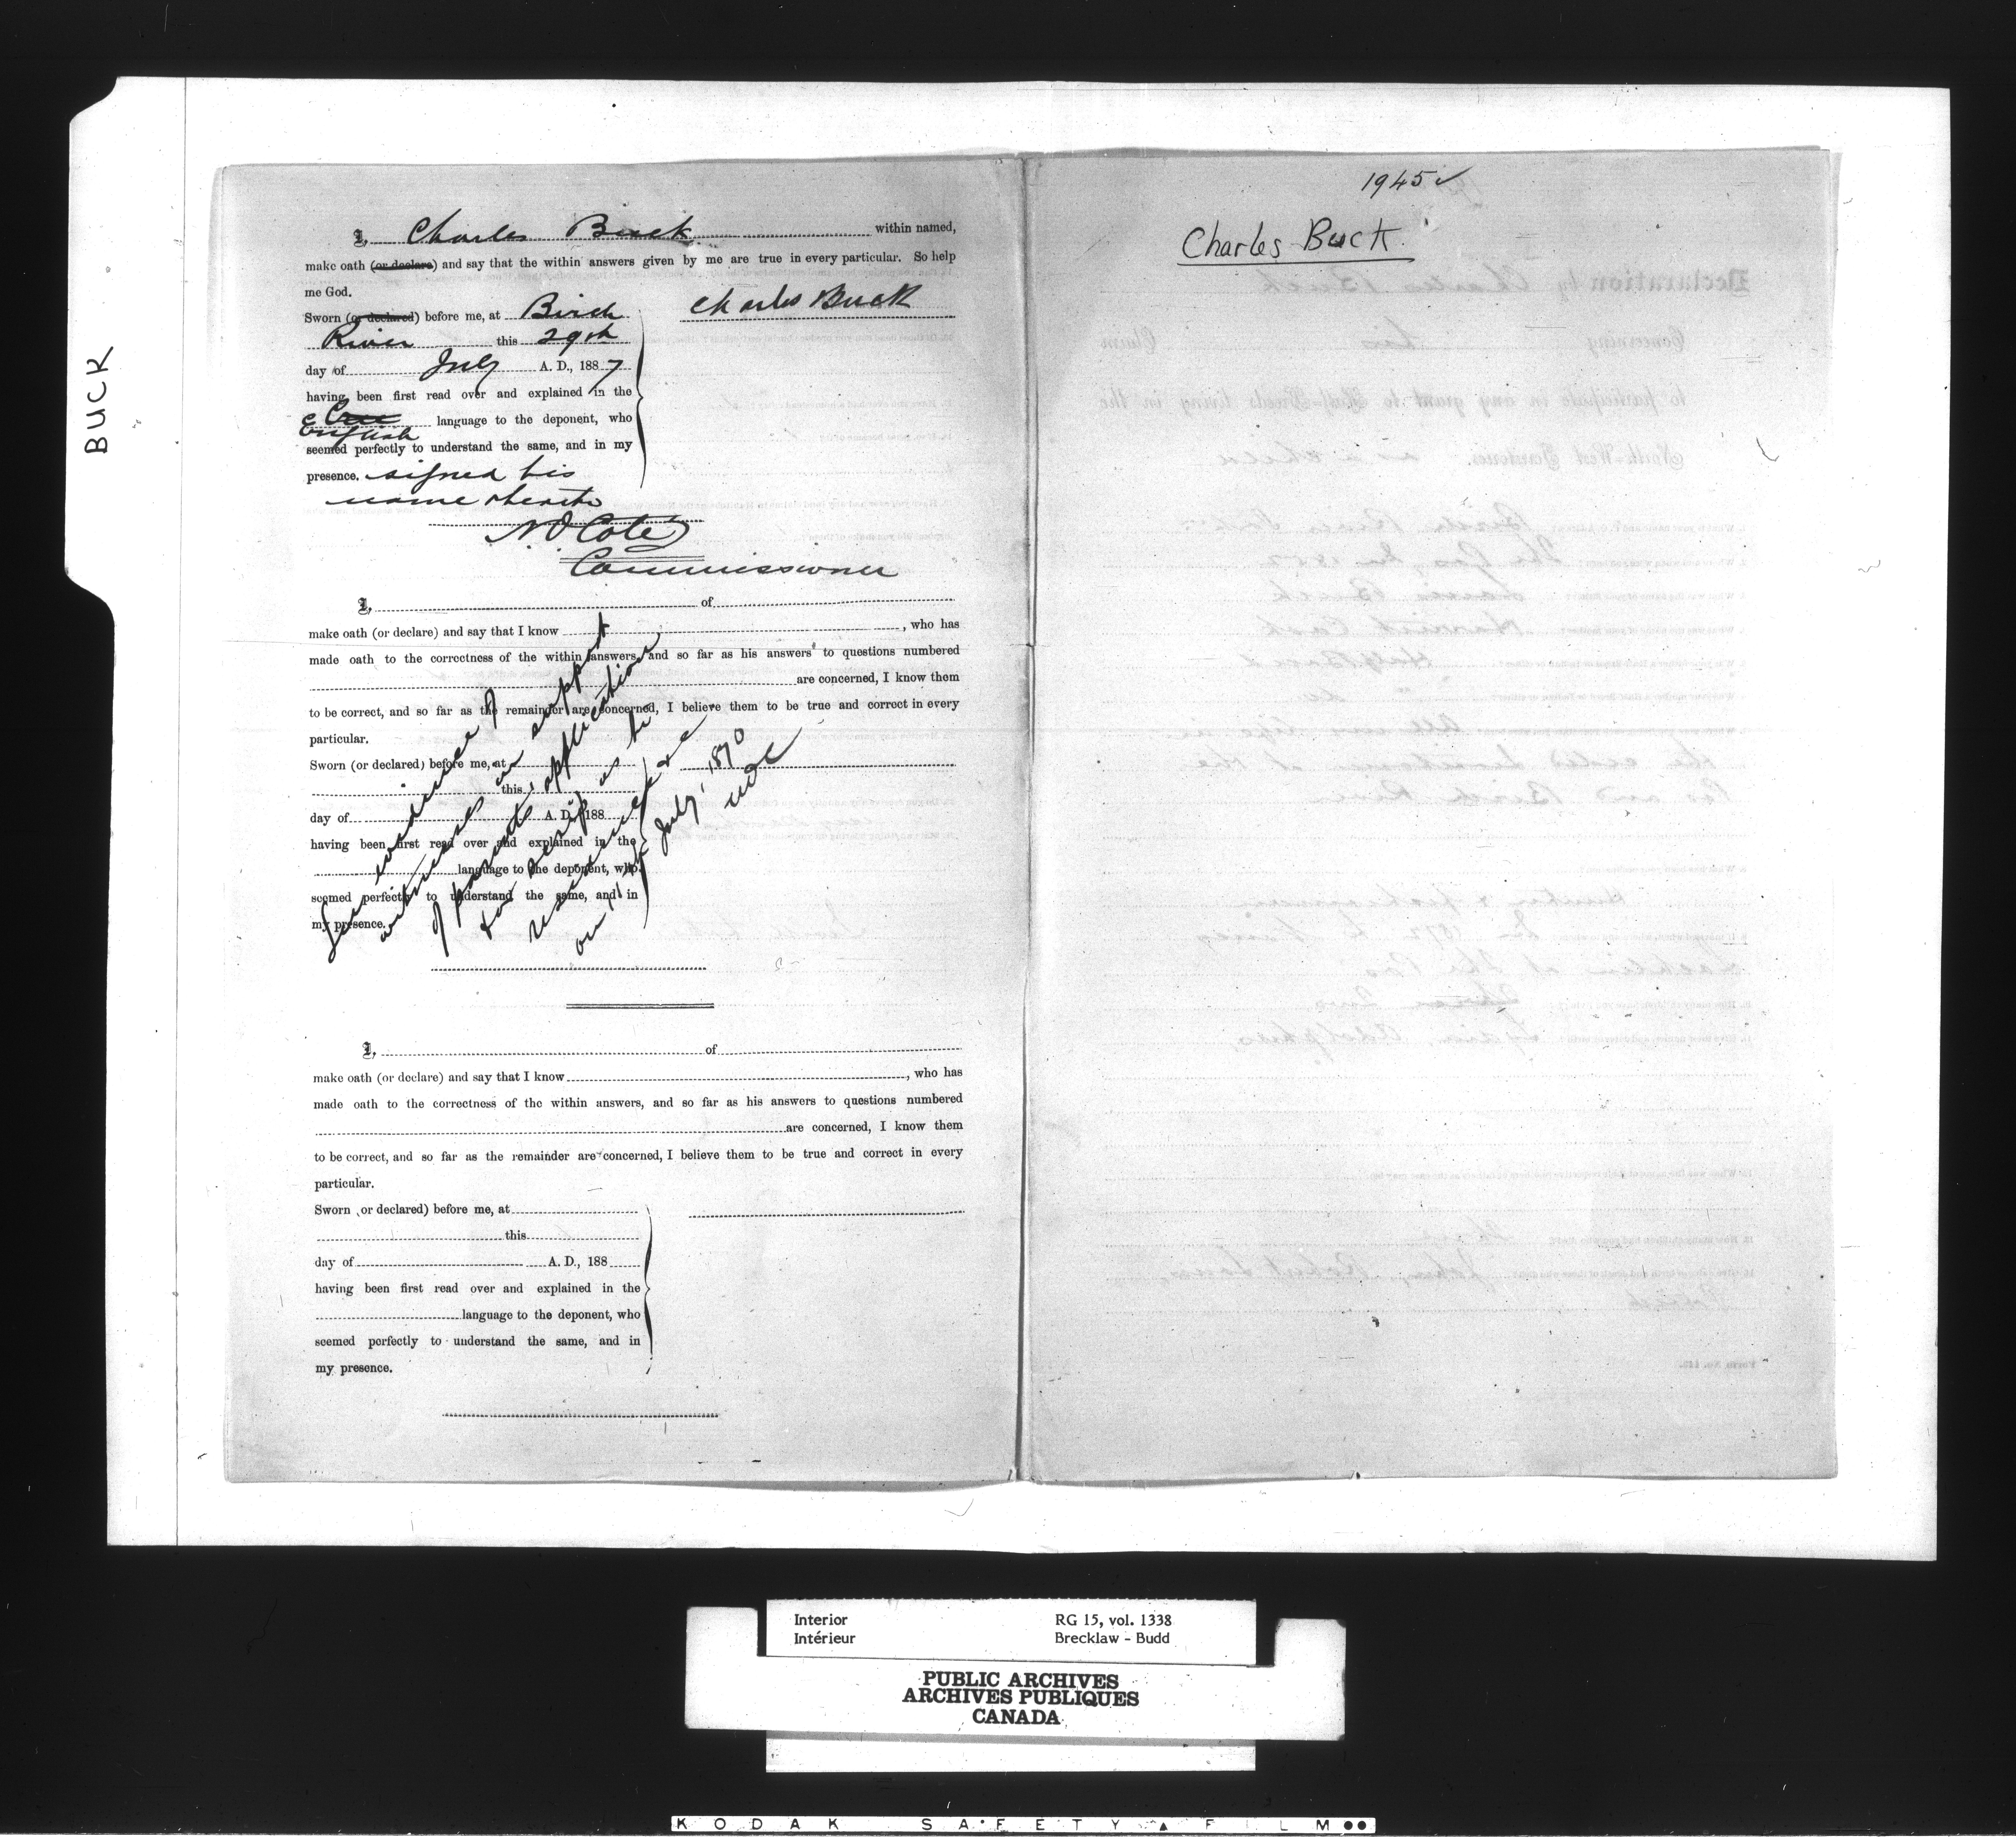 BUCK
I, Charles Buck within named,
make oath (or declare) and say that the within answers given by me are true in every particular. So help
me God.
Charles Buck
Sworn (or declared) before me, at Birch
River this 29th
day of July A. D., 1887
having been first read over and explained in the
Cree
English language to the deponent, who
seemed perfectly to understand the same, and in my
presence. signed his
name thereto
N O Coté
Commissioner
I, of
make oath (or declare) and say that I know , who has
made oath to the correctness of the within answers, and so far as his answers to questions numbered
are concerned, I know them
to be correct, and so far as the remainder are concerned, I believe them to be true and correct in every
particular.
Sworn (or declared) before me, at
this
day of A. D., 188
having been first read over and explained in the
language to the deponent, who
seemed perfectly to understand the same, and in
my presence.
See evidence of
witnesses in support
of parents application
for scrip as to
residence &c
on 15 July, 1870
NOC
I, of
make oath (or declare) and say that I know , who has
made oath to the correctness of the within answers, and so far as his answers to questions numbered
are concerned, I know them
to be correct, and so far as the remainder are concerned, I believe them to be true and correct in every
particular.
Sworn or declared) before me, at
this
day of A. D., 188
having been first read over and explained in the
language to the deponent, who
seemed perfectly to understand the same, and in
my presence.
1945 ✓
Charles Buck
Interior RG 15, vol. 1338
Intérieur Brecklaw - Budd
PUBLIC ARCHIVES
ARCHIVES PUBLIQUES
CANADA
KODAK SAFETY ▲ FILM ●●